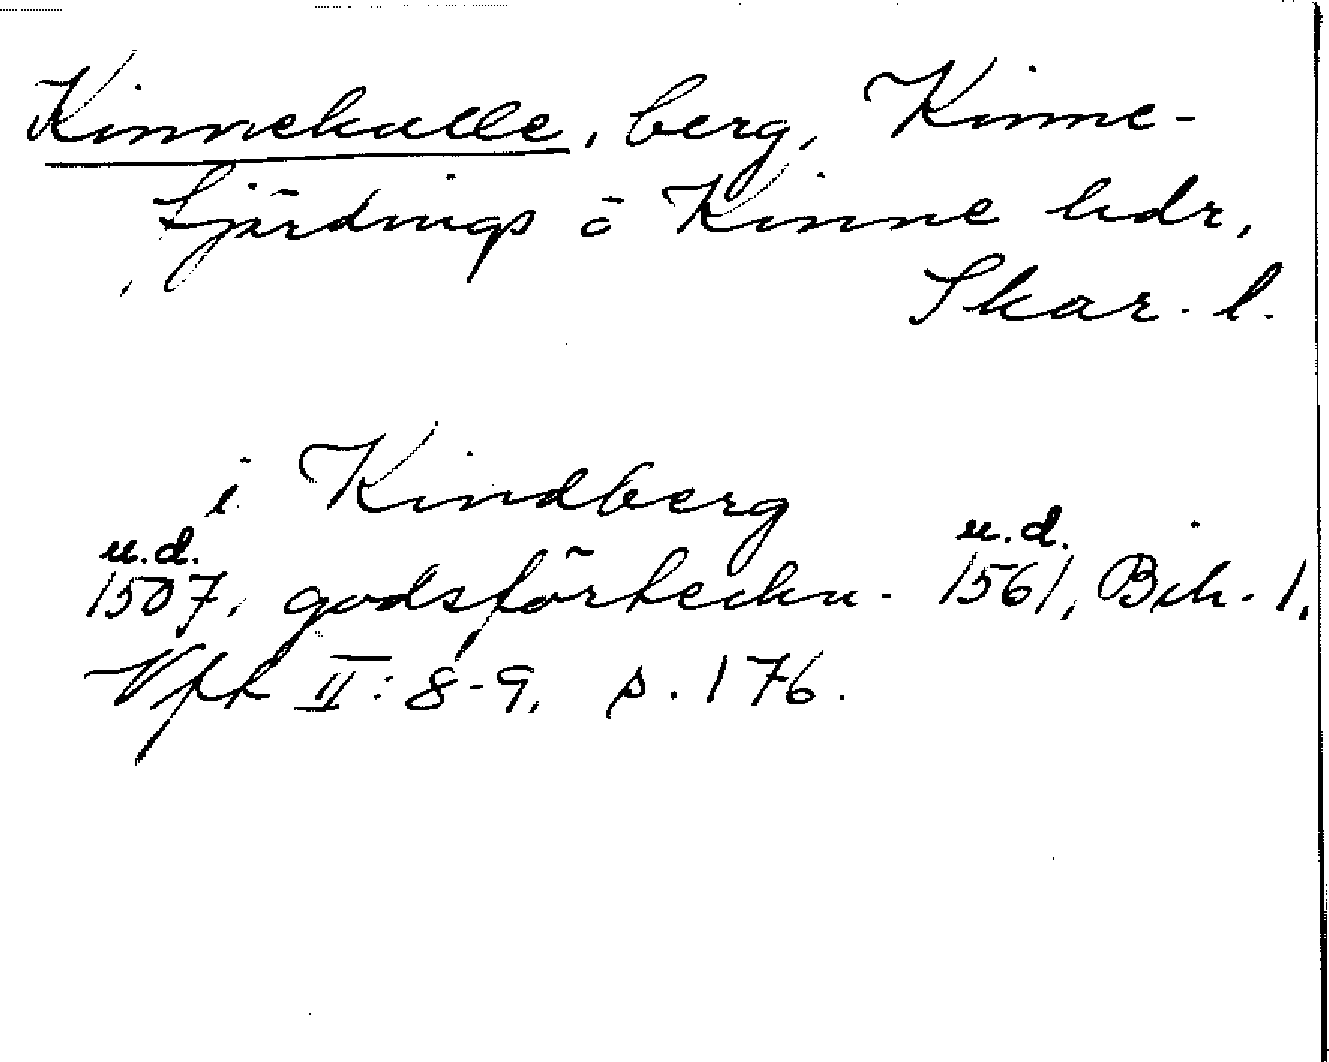 Kinnekulle, berg, Kinne-
fjärdings o Kinne hdr,
Skar. l.
i Kindberg
u.d. u.d.
1507, godsförteckn. 1561, Bih. 1,
Vfk II: 8-9, s. 176.